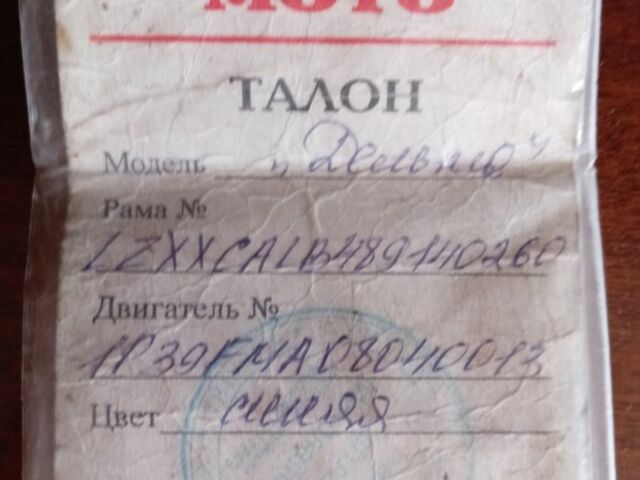 МОТО
ТАЛОН
Модель "Дельта"
Рама №
LZXXCALB489140260
Двигатель №
1P39FMA08040013
Цвет синяя